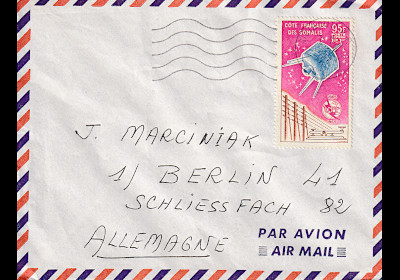 CÔTE FRANÇAISE
DES SOMALIS
95F
J. MARCINIAK
1/ BERLIN 41
SCHLIESSFACH 82
ALLEMAGNE
PAR AVION
AIR MAIL